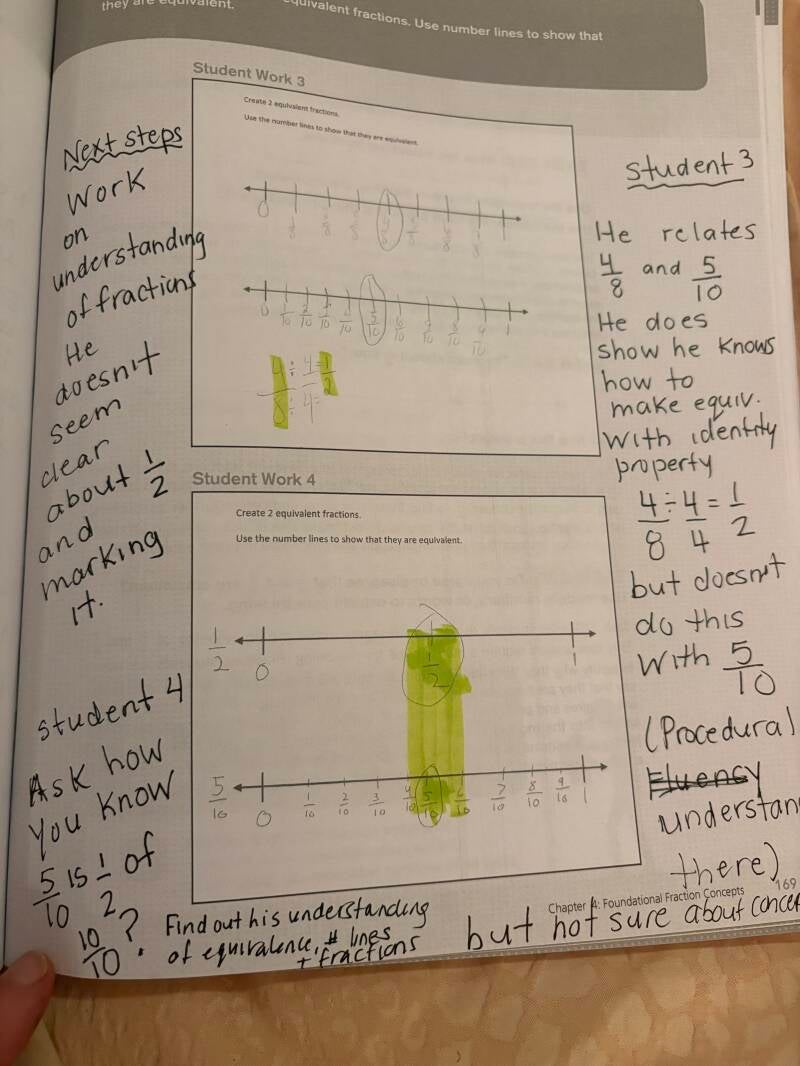 they are equivalent.
equivalent fractions. Use number lines to show that
Student Work 3
Create 2 equivalent fractions.
Use the number lines to show that they are equivalent.
0
0 1/10 2/10 5/10 6/10 8/10 1
4/8 ÷ 4/4 = 1/2
Student Work 4
Create 2 equivalent fractions.
Use the number lines to show that they are equivalent.
1/2
0 1/2 1
5/10
0 1/10 2/10 3/10 4/10 5/10 6/10 7/10 8/10 9/10 1
Next steps
Work
on
understanding
of fractions
He
doesn't
seem
clear
about 1/2
and
marking
it.
student 4
Ask how
you know
5/10 is 1/2 of
10/10?
Find out his understanding
of equivalence, # lines
+ fractions
student 3
He relates
4/8 and 5/10
He does
show he knows
how to
make equiv.
with identity
property
4/8 ÷ 4/4 = 1/2
but doesn't
do this
with 5/10
(Procedural
Fluency
understan
there)
but not sure about concep
Chapter 4: Foundational Fraction Concepts
169